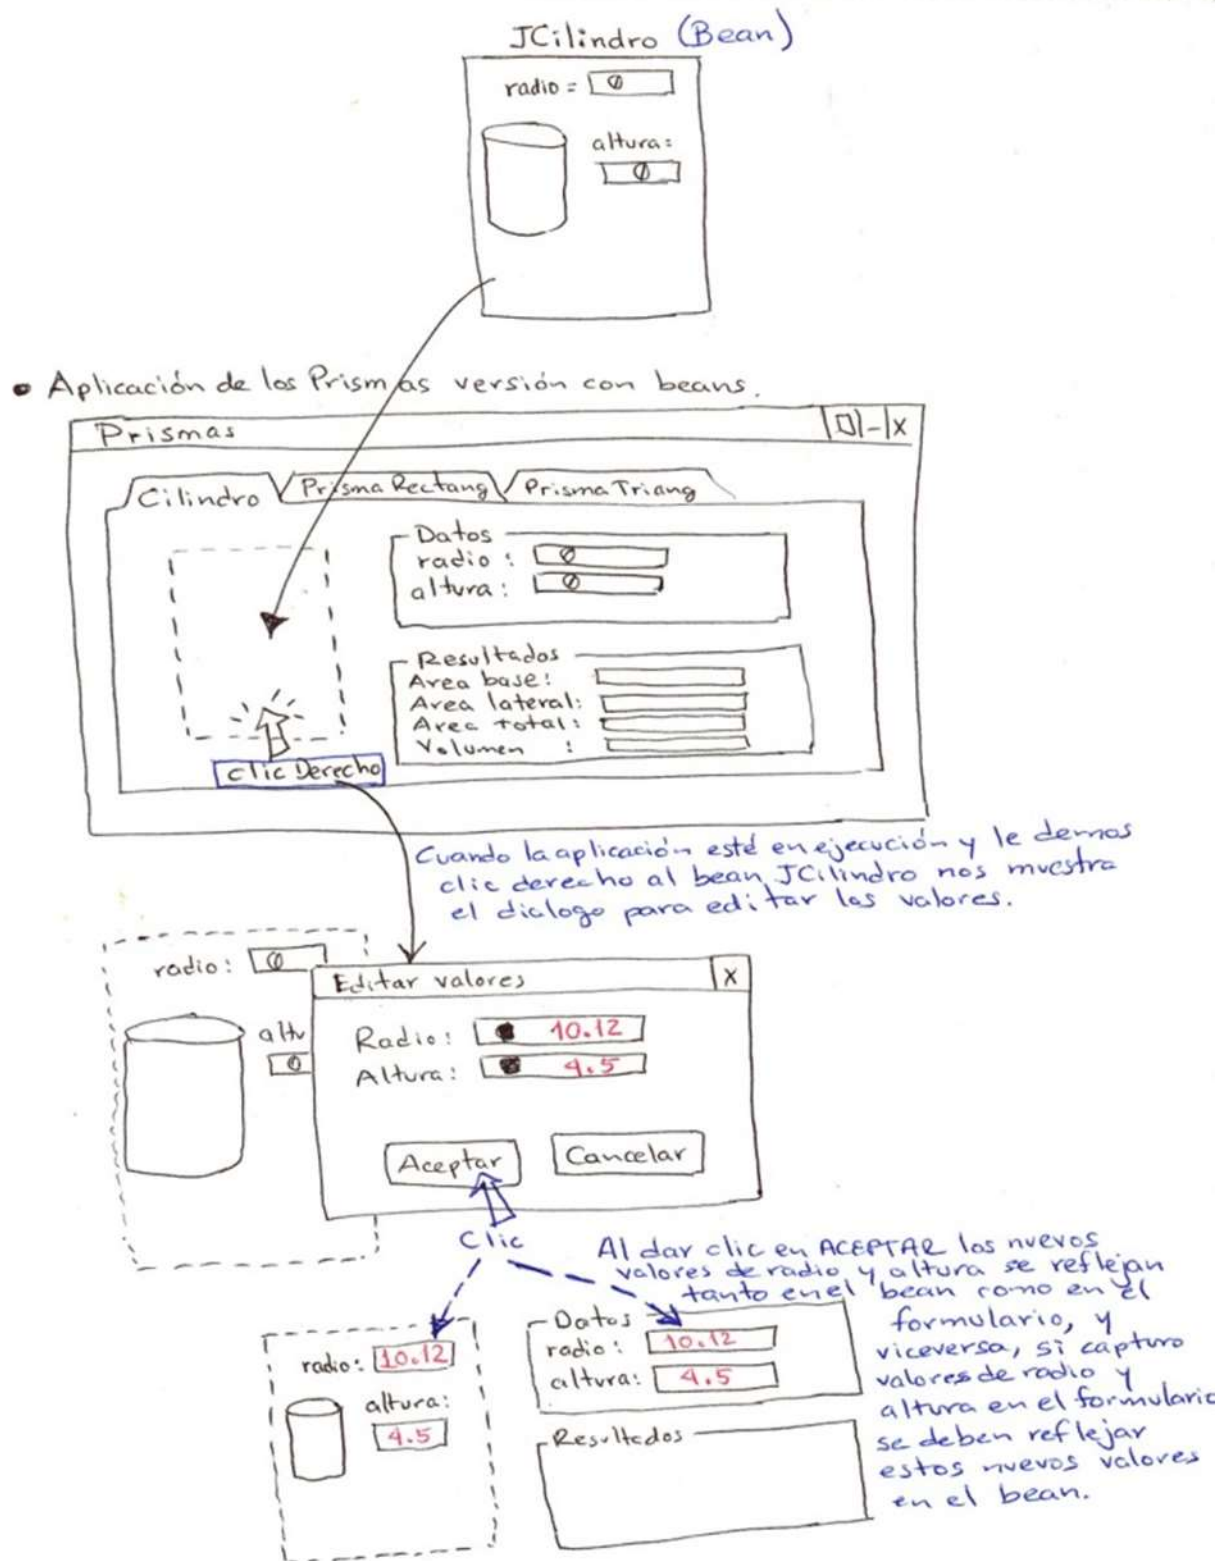 JCilindro (Bean)
radio = 0
altura:
0
• Aplicación de los Prismas versión con beans.
Prismas
Cilindro Prisma Rectang Prisma Triang
Datos
radio : 0
altura: 0
Resultados
Area base:
Area lateral:
Area total:
Volumen :
Clic Derecho
Cuando la aplicación esté en ejecución y le demos
clic derecho al bean JCilindro nos muestra
el dialogo para editar los valores.
radio: 0
altu
0
Editar valores X
Radio: 10.12
Altura: 4.5
Aceptar Cancelar
Clic
Al dar clic en ACEPTAR los nuevos
valores de radio y altura se reflejan
tanto en el bean como en el
formulario, y
viceversa, si capturo
valores de radio y
altura en el formulario
se deben reflejar
estos nuevos valores
en el bean.
radio: 10.12
altura:
4.5
Datos
radio: 10.12
altura: 4.5
Resultados